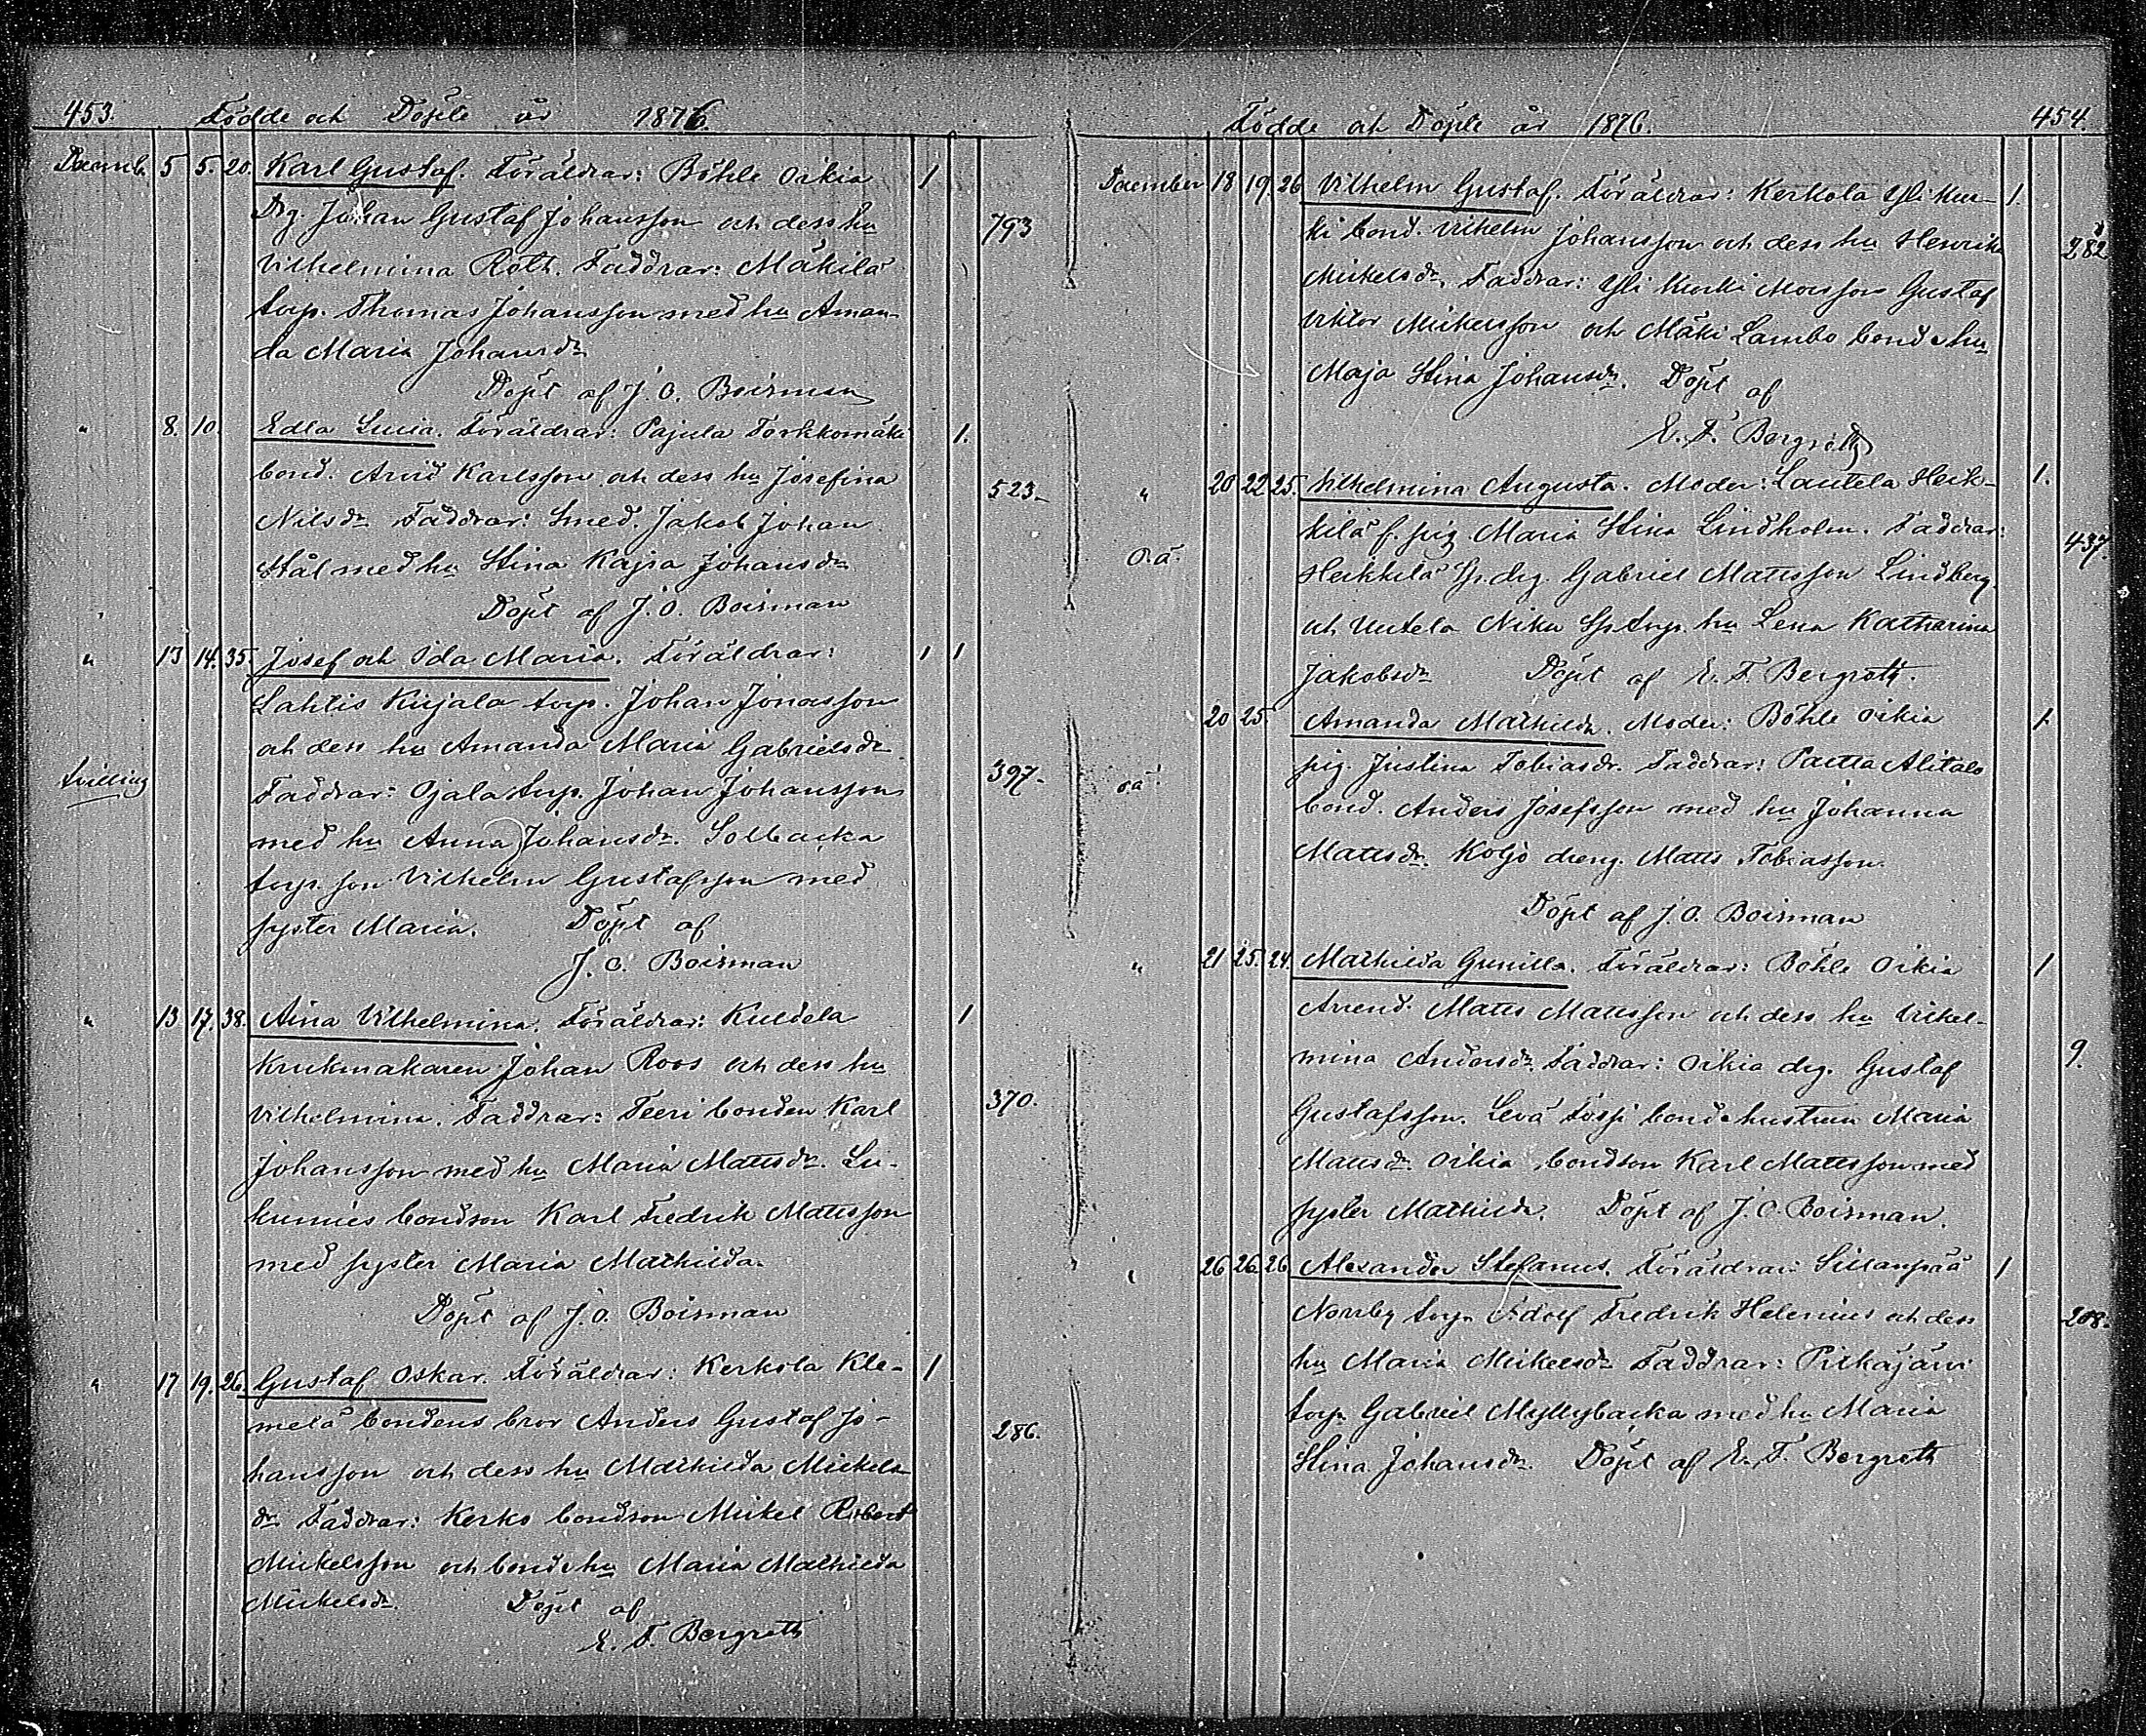 453. Födde och Döpte år 1876.
Decemb. 5 5. 20. Karl Gustaf. Föräldrar: Böhle Oikia 1
Drg. Johan Gustaf Johansson och dess hu 793
Vilhelmina Roth. Faddrar: Mäkilä
torp. Thomas Johansson med hu Aman-
da Maria Johansdr
Döpt af J. O. Boisman
" 8. 10. Edla Lucia. Föräldrar: Pajula Torkkomäki 1.
bond. Arvid Karlsson och dess hu Josefina 523-
Nilsdr Faddrar: Smed. Jakob Johan
Stål med hu Stina Kajsa Johansdr
Döpt af J. O. Boisman
" 13 14. 35. Josef och Ida Maria. Föräldrar: 1 1
Lahtis Kirjala torp. Johan Jonasson
och dess hu Amanda Maria Gabrielsdr
tvilling Faddrar: Ojala torp. Johan Johansson 397-
med hu Anna Johansdr. Solbacka
torp. son Vilhelm Gustafsson med
syster Maria. Döpt af
J. O. Boisman
" 13 17. 38. Aina Vilhelmina. Föräldrar: Kuldela 1
Krukmakaren Johan Roos och dess hu
Vilhelmina. Faddrar: Teeri bonden Karl 370.
Johansson med hu Maria Mattsdr. Lu-
kumies bondson Karl Fredrik Mattsson
med syster Maria Mathilda.
Döpt af J. O. Boisman
" 17 19. 26. Gustaf Oskar. Föräldrar: Kerkola Kle- 1
melä bondens bror Anders Gustaf Jo- 286.
hansson och dess hu Mathilda Mickels-
dr Faddrar: Kerko bondson Mickel Robert
Mickelsson och bond. hu Maria Mathilda
Mickelsdr. Döpt af
E. F. Bergroth
Födde och Döpte år 1876. 454.
December 18 19. 26 Vilhelm Gustaf. Föräldrar: Kerkola Yli Kur- 1.
ki bond. Vilhelm Johansson och dess hu Henrika 282
Mickelsdr. Faddrar: Yli Kurki Gustaf
Viktor Mickelsson och Mäki Lambo bond. hu
Maja Stina Johansdr. Döpt af
E. F. Bergroth
" 20 22 25. Vilhelmina Augusta. Moder: Lautela Heik- 1.
o.ä. kilä f. pig. Maria Stina Lindholm. Faddrar: 437.
Heikkilä drg. Gabriel Mattsson Lindberg
och Uutela Niku torp. hu Lena Katharina
Jakobsdr Döpt af E. F. Bergroth.
20 25. Amanda Mathilda. Moder: Böhle Oikia 1.
o.ä. pig. Justina Tobiasdr. Faddrar: Paetta Alitalo
bond. Anders Josefsson med hu Johanna
Mattsdr. Koljo dreng. Matts Tobiasson.
Döpt af J. O. Boisman
" 21 25. 24. Mathilda Gunilla. Föräldrar: Böhle Oikia 1
Arrend. Matts Mattsson och dess hu Vilhel-
mina Andersdr. Faddrar: Oikia drg. Gustaf 9.
Gustafsson. Levä bond. hustrun Maria
Mattsdr. Oikia bondson Karl Mattsson med
syster Mathilda. Döpt af J. O. Boisman.
26 26. 26 Alexander Stefanus. Föräldrar: Sillanpää 1
Norrby torp. Adolf Fredrik Helenius och dess 208.
hu Maria Mickelsdr Faddrar: Pitkäjärvi
torp. Gabriel Myllybacka med hu Maria
Stina Johansdr. Döpt af E. F. Bergroth